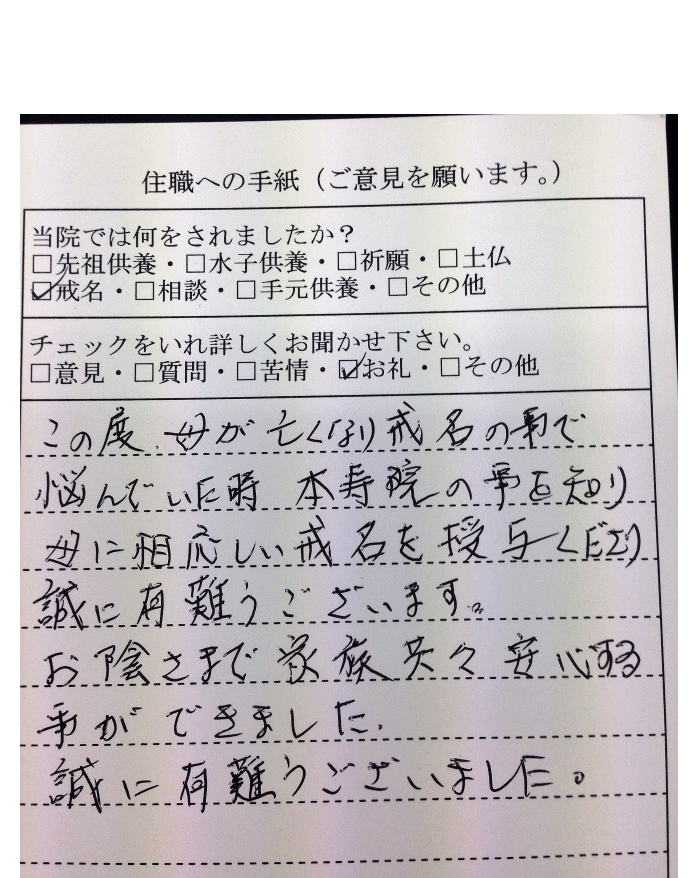 住職への手紙（ご意見を願います。）
当院では何をされましたか？
□先祖供養・□水子供養・□祈願・□土仏
☑戒名・□相談・□手元供養・□その他
チェックをいれ詳しくお聞かせ下さい。
□意見・□質問・□苦情・☑お礼・□その他
この度、母が亡くなり戒名の事で
悩んでいた時 本寿院の事を知り
母に相応しい戒名を授与くださり
誠に有難うございます。
お陰さまで家族共々安心する
事ができました。
誠に有難うございました。